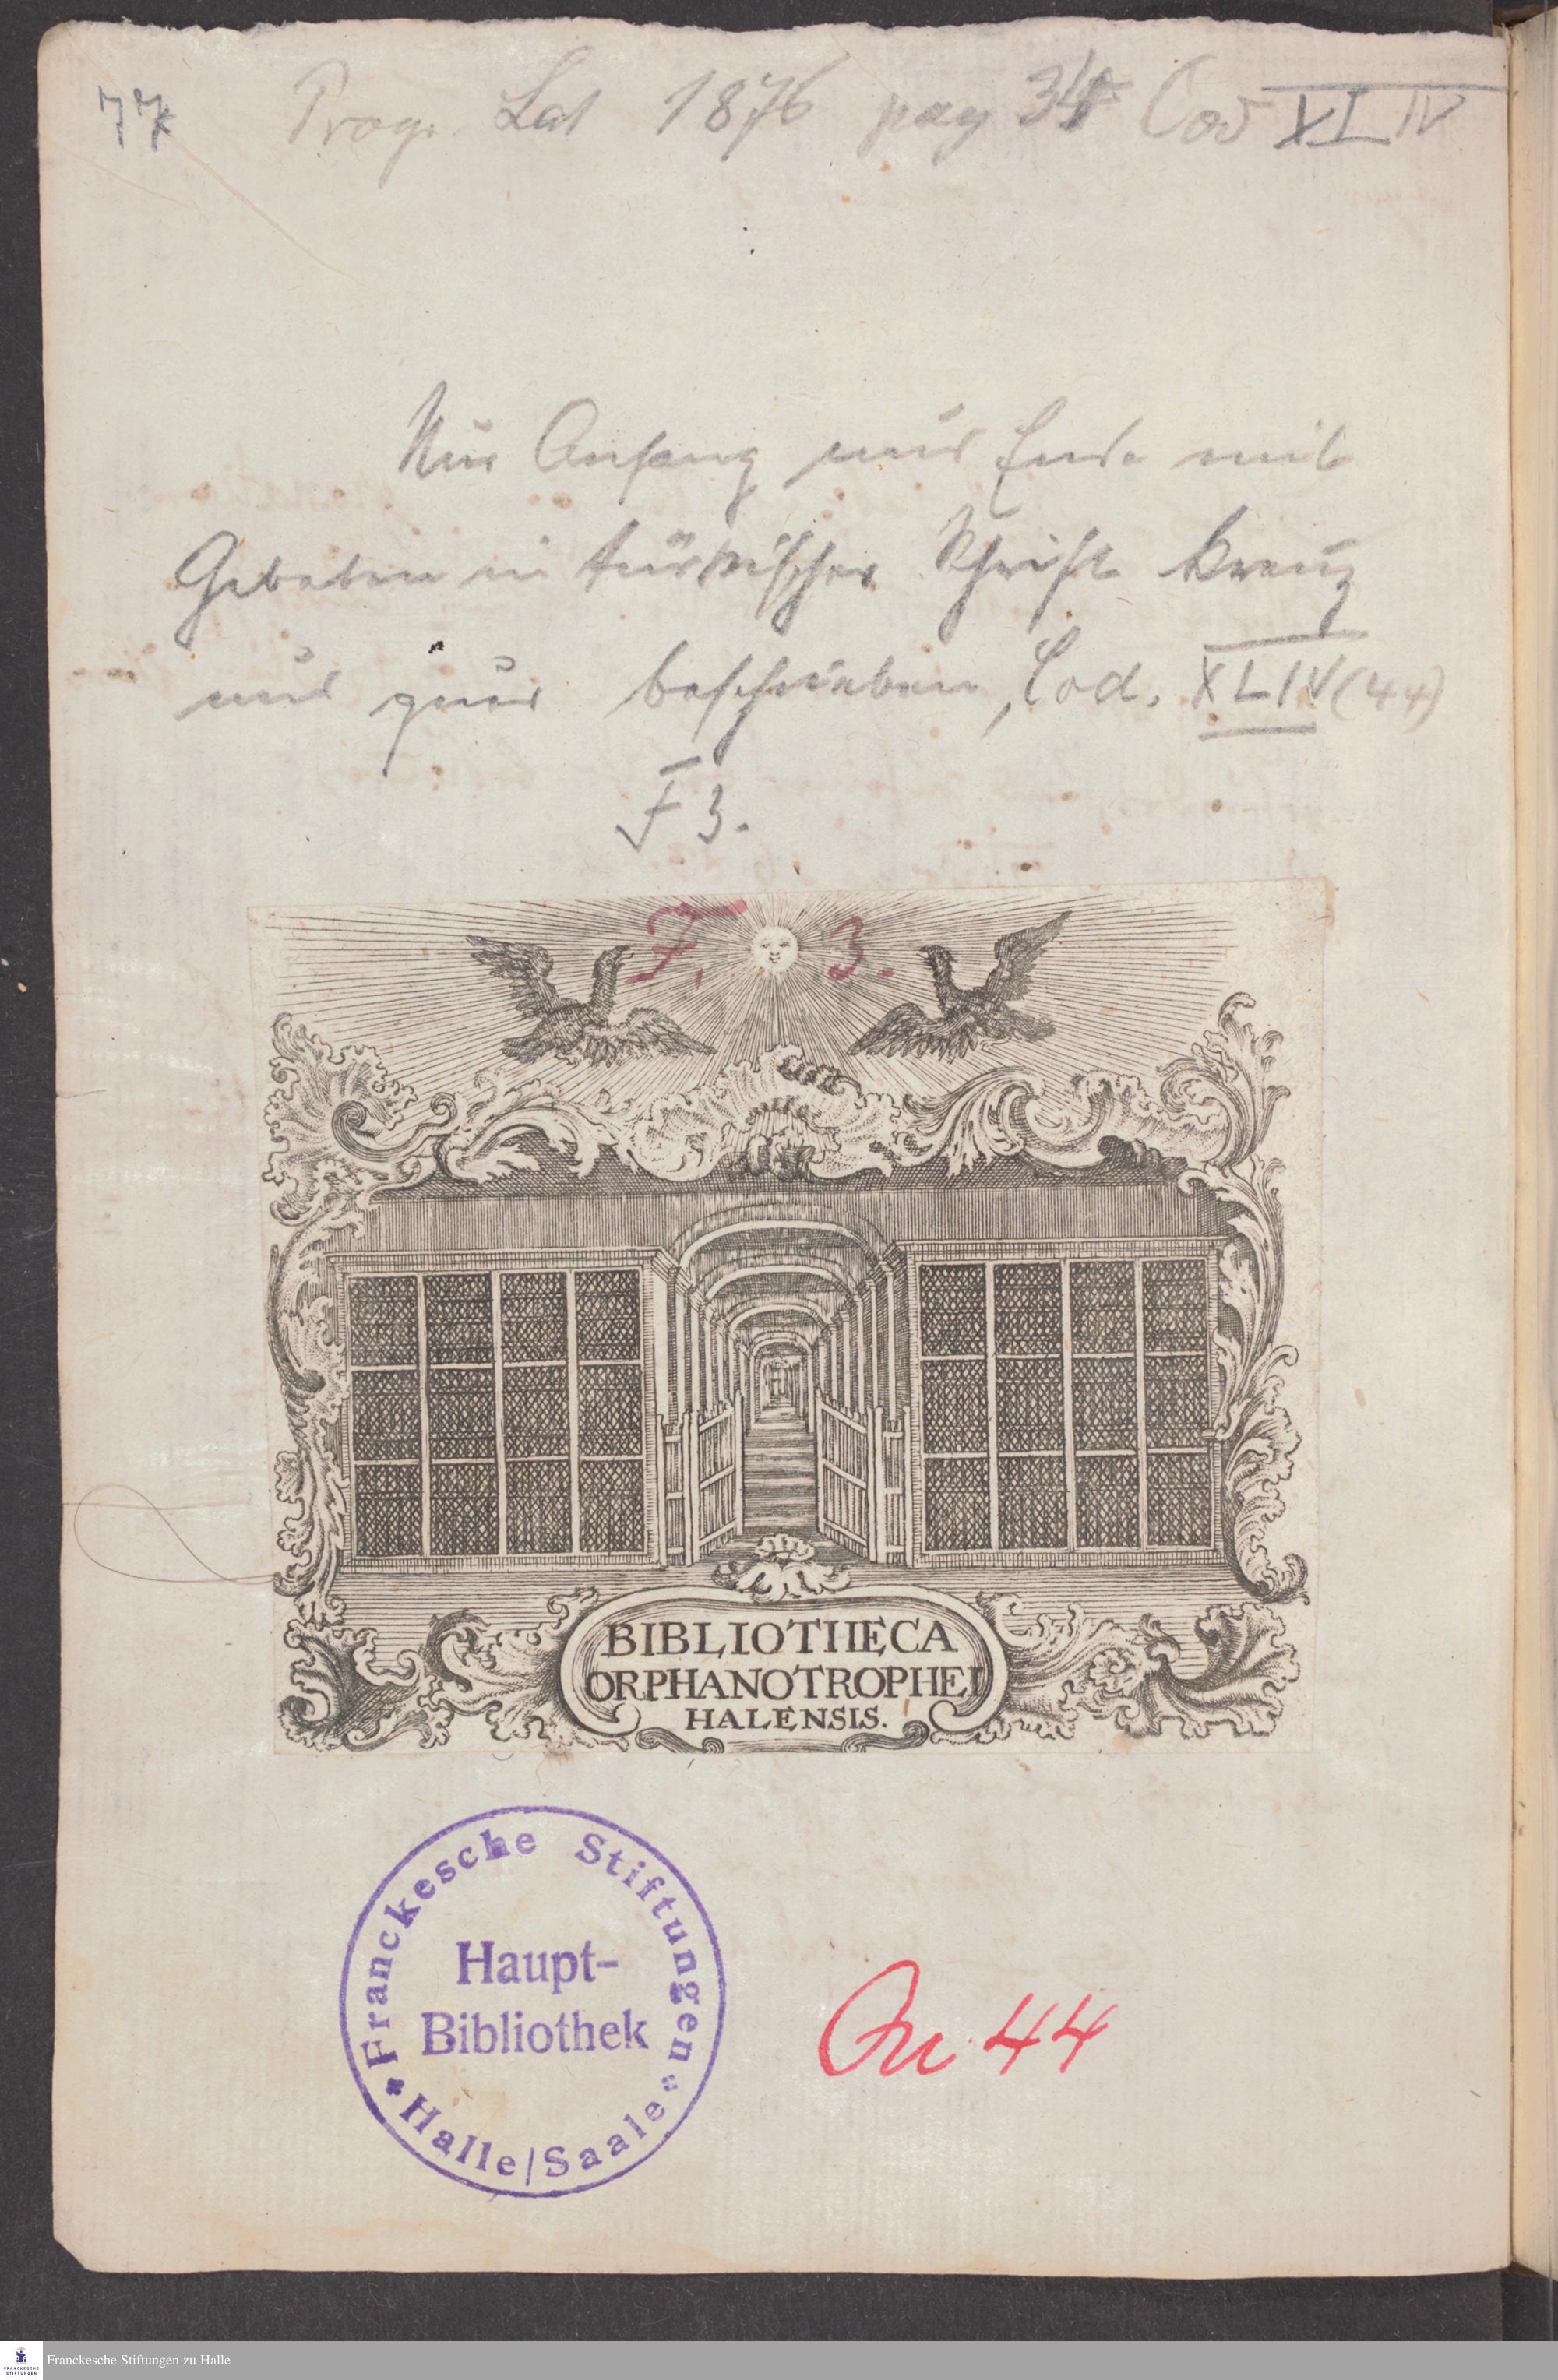 77 Progr. Lat 1876 pag 34 Cod XLIV
Nur Anfang und Ende mit
Gebeten in türkischer Schrift kreuz
und quer beschrieben, Cod. XLIV (44)
F 3.
F. 3.
BIBLIOTHECA
ORPHANOTROPHEI
HALENSIS.
Franckesche Stiftungen
Haupt-
Bibliothek
Halle/Saale
Qu. 44
FRANCKESCHE
STIFTUNGEN
Franckesche Stiftungen zu Halle